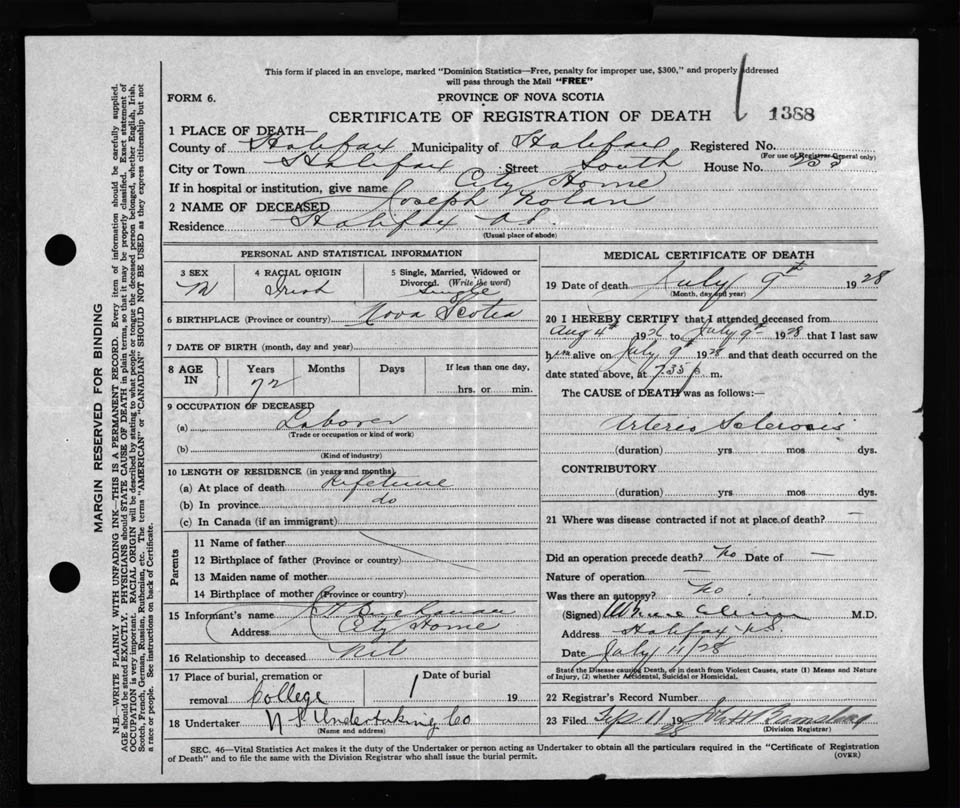 This form if placed in an envelope, marked "Dominion Statistics—Free, penalty for improper use, $300," and properly addressed
will pass through the Mail "FREE"
FORM 6. PROVINCE OF NOVA SCOTIA
CERTIFICATE OF REGISTRATION OF DEATH 1388
1 PLACE OF DEATH—
County of Halifax Municipality of Halifax Registered No.
(For use of Registrar General only)
City or Town Halifax Street South House No.
If in hospital or institution, give name City Home
2 NAME OF DECEASED Joseph Nolan
Residence Halifax N.S.
(Usual place of abode)
PERSONAL AND STATISTICAL INFORMATION
3 SEX 4 RACIAL ORIGIN 5 Single, Married, Widowed or
Divorced. (Write the word)
M Irish Single
6 BIRTHPLACE (Province or country) Nova Scotia
7 DATE OF BIRTH (month, day and year)
8 AGE IN Years Months Days If less than one day,
72 hrs. or min.
9 OCCUPATION OF DECEASED
(a) Laborer
(Trade or occupation or kind of work)
(b)
(Kind of industry)
10 LENGTH OF RESIDENCE (in years and months)
(a) At place of death Lifetime
(b) In province do
(c) In Canada (if an immigrant)
Parents
11 Name of father
12 Birthplace of father (Province or country)
13 Maiden name of mother
14 Birthplace of mother (Province or country)
15 Informant's name Buchanan
Address City Home
16 Relationship to deceased Nil
17 Place of burial, cremation or Date of burial
removal College 19
18 Undertaker N S Undertaking Co
(Name and address)
MEDICAL CERTIFICATE OF DEATH
19 Date of death July 9th 1928
(Month, day and year)
20 I HEREBY CERTIFY that I attended deceased from
Aug 4th 192 to July 9th 1928 that I last saw
him alive on July 9th 1928 and that death occurred on
date stated above, at 7.35 p. m.
The CAUSE of DEATH was as follows:—
Arterio Sclerosis
(duration) yrs. mos. dys.
CONTRIBUTORY
(duration) yrs. mos. dys.
21 Where was disease contracted if not at place of death? —
Did an operation precede death? No Date of —
Nature of operation —
Was there an autopsy? No
(Signed) M.D.
Address Halifax N.S.
Date July 11/28
State the Disease causing Death, or in death from Violent Causes, state (1) Means and Nature
of Injury, (2) whether Accidental, Suicidal or Homicidal.
22 Registrar's Record Number
23 Filed 11 1928
(Division Registrar)
SEC. 46—Vital Statistics Act makes it the duty of the Undertaker or person acting as Undertaker to obtain all the particulars required in the "Certificate of Registration
of Death" and to file the same with the Division Registrar who shall issue the burial permit. (OVER)
MARGIN RESERVED FOR BINDING
N.B.—WRITE PLAINLY WITH UNFADING INK—THIS IS A PERMANENT RECORD. Every item of information should be carefully supplied.
AGE should be stated EXACTLY. PHYSICIANS should STATE CAUSE OF DEATH in plain terms, so that it may be properly classified. Exact statement of
OCCUPATION is very important. RACIAL ORIGIN will be described by stating to what people or tongue the deceased person belonged, whether English, Irish,
Scotch, French, German, Russian, Ruthenian, etc. The terms "AMERICAN" or "CANADIAN" SHOULD NOT BE USED as they express citizenship but not
a race or people. See instructions on back of Certificate.